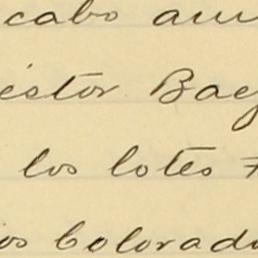 cabo
éstor Bae
los lotes
os Colorad